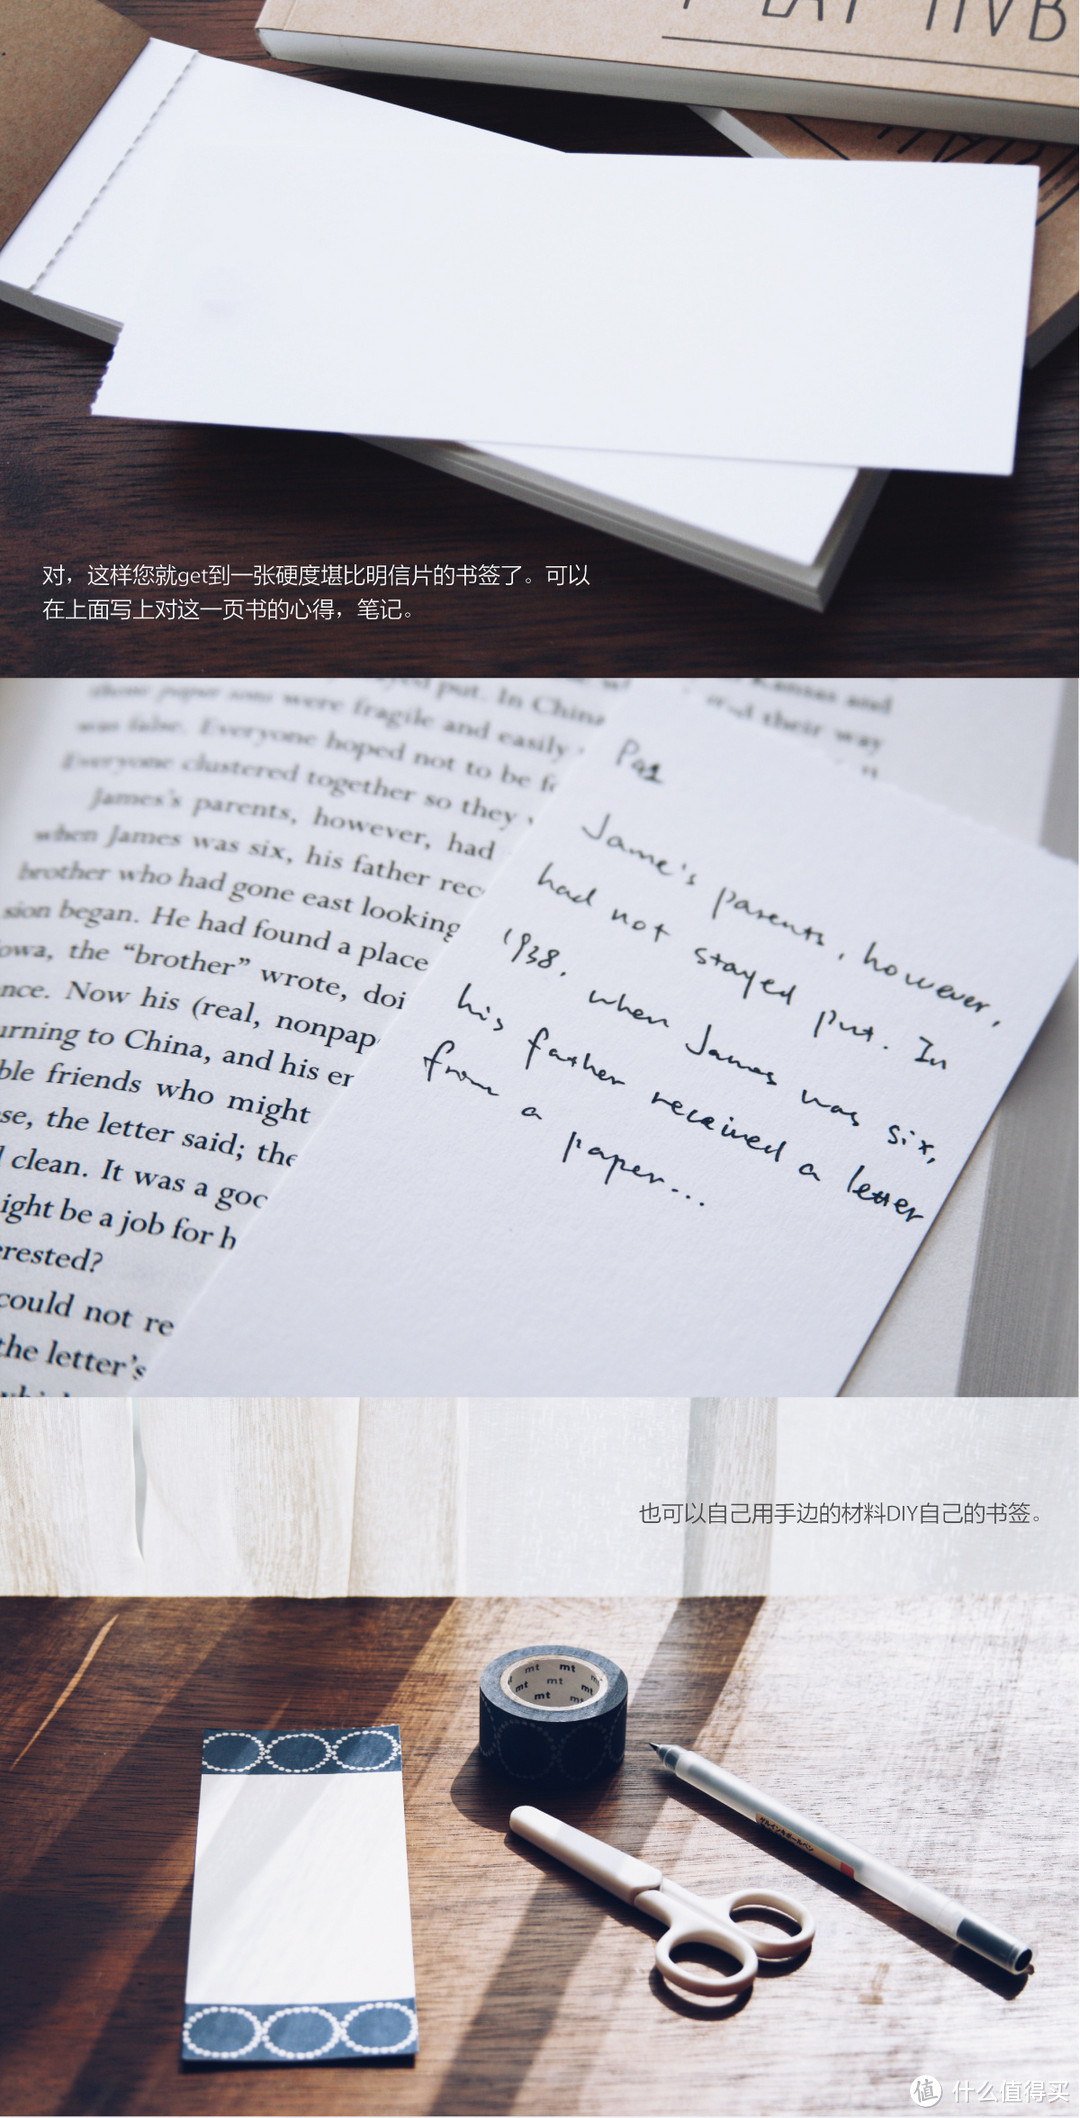 对，这样您就get到一张硬度堪比明信片的书签了。可以
在上面写上对这一页书的心得，笔记。
put. In China
were fragile and easily
was false. Everyone hoped not to be
Everyone clustered together so they
James's parents, however, had
when James was six, his father
brother who had gone east looking
sion began. He had found a place
the “brother” wrote, doi
nce. Now his (real, nonpap
urning to China, and his er
ble friends who might
se, the letter said; the
clean. It was a goo
ight be a job for h
erested?
could not re
the letter's
Kansas and
their way
Jame's parents, however,
had not stayed put. In
1938, when James was six,
his father received a letter
from a paper...
也可以自己用手边的材料DIY自己的书签。
mt mt
mt mt mt
mt mt
值 什么值得买